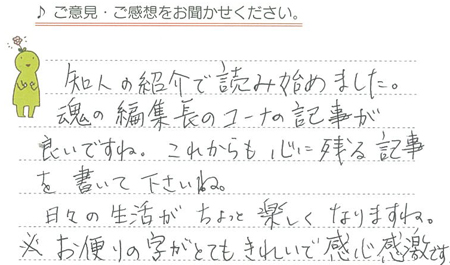 ♪ ご意見・ご感想をお聞かせください。
知人の紹介で読み始めました。
魂の編集長のコーナの記事が
良いですね。これからも心に残る記事
を書いて下さいね。
日々の生活がちょっと楽しくなりますね。
※お便りの字がとてもきれいで感心感激です